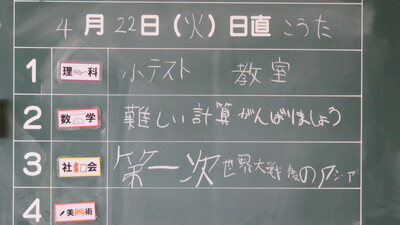 4月22日(火)日直 こうた
1 理科 小テスト 教室
2 数学 難しい計算がんばりましょう
3 社会 第一次世界大戦後のアジア
4 美術